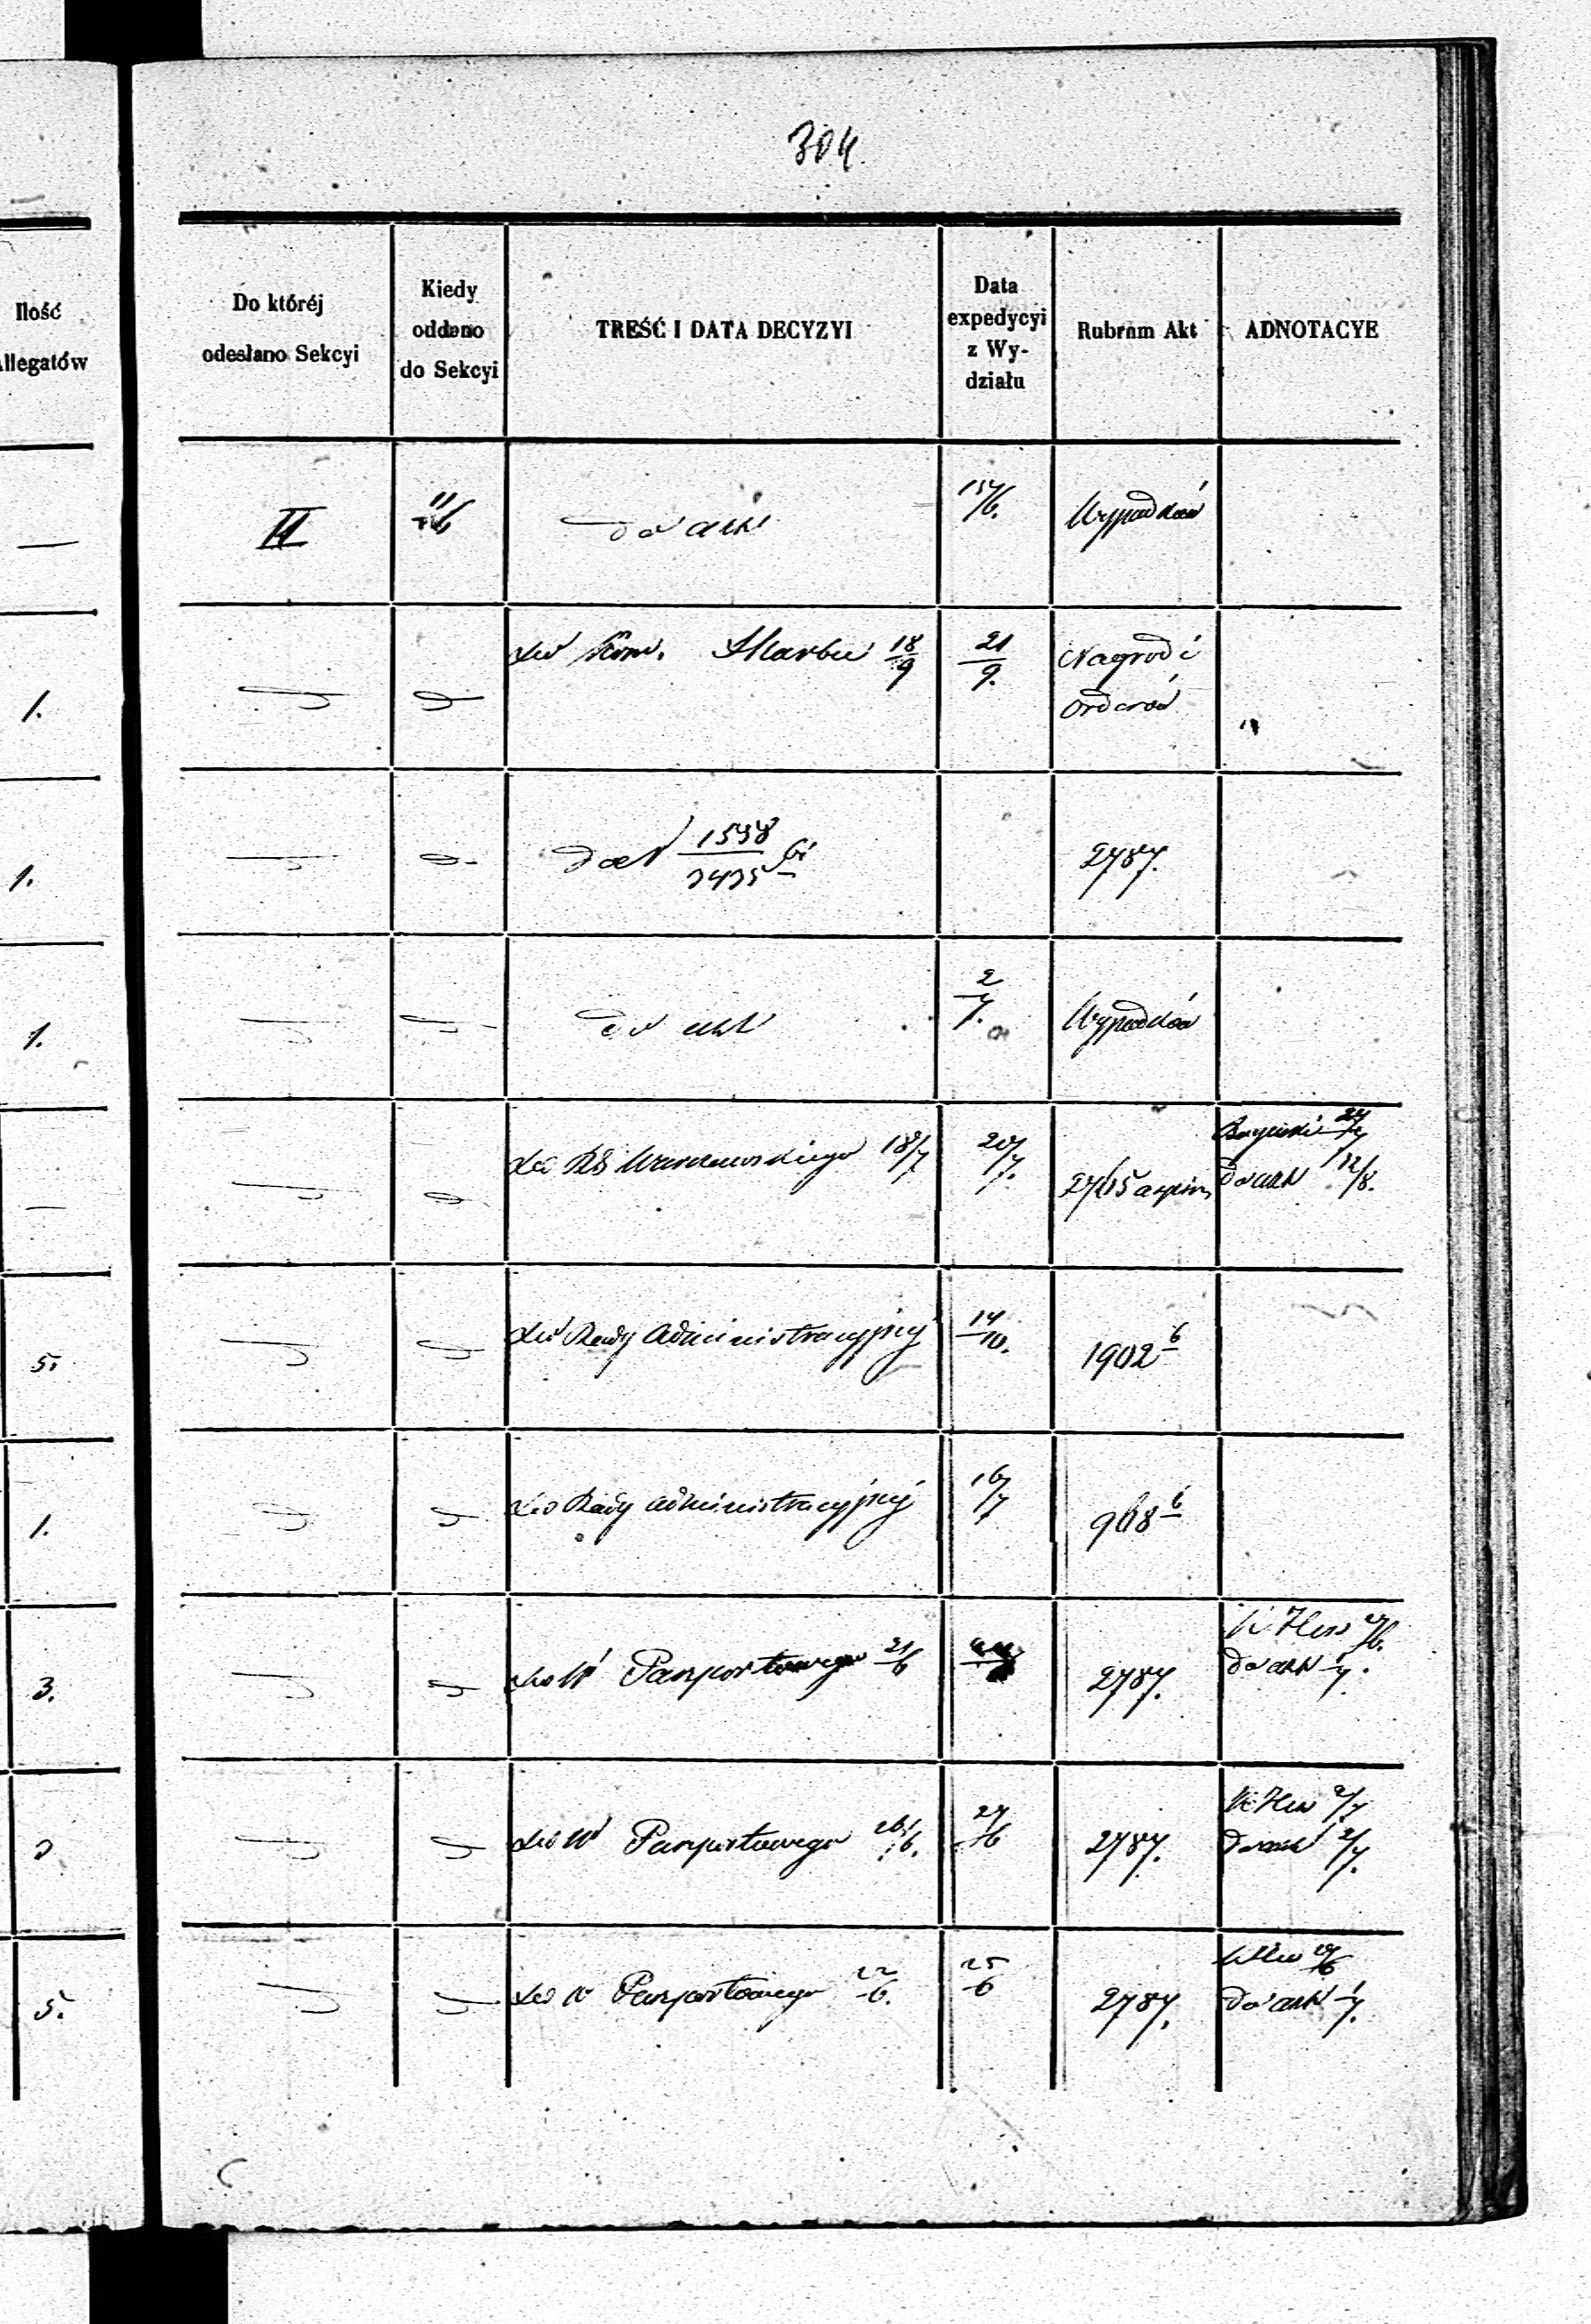 304.
Ilość
Allegatów
Do któréj
odesłano Sekcyi
Kiedy
oddano
do Sekcyi
TREŚĆ I DATA DECYZYI
Data
expedycyi
z Wy-
działu
Rubrum Akt
ADNOTACYE
—
II
11/6
do akt
15/6.
Wypadków
1.
do Kom. Skarbu 18/9
21/9.
Nagrod i
Orderów
1.
do N 1548/3435
2787.
1.
do akt
2/7.
Wypadków
—
do Warszawskiego 18/7
20/7.
2765
do akt 12/8.
5.
do Rady Administracyjnej
14/10.
1902 6
1.
do Rady Administracyjnej
16/7
968 6
3.
do W Paszportowego 21/6
2787.
do akt 1/7.
3
do W Paszportowego 26/6.
27/6
2787.
do akt 2/7.
5.
do W Paszportowego 22/6.
25/6
2787.
do akt 1/7.